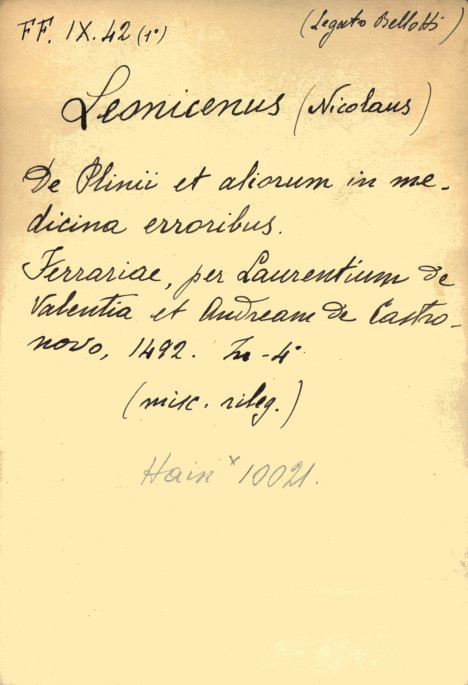 FF. IX. 42 (1°) (Legato Bellotti)
Leonicenus (Nicolaus)
De Plinii et aliorum in me-
dicina erroribus.
Ferrariae, per Laurentium de
Valentia et Andream de Castro-
novo, 1492. In-4°
(misc. rileg.)
Hain * 10021.